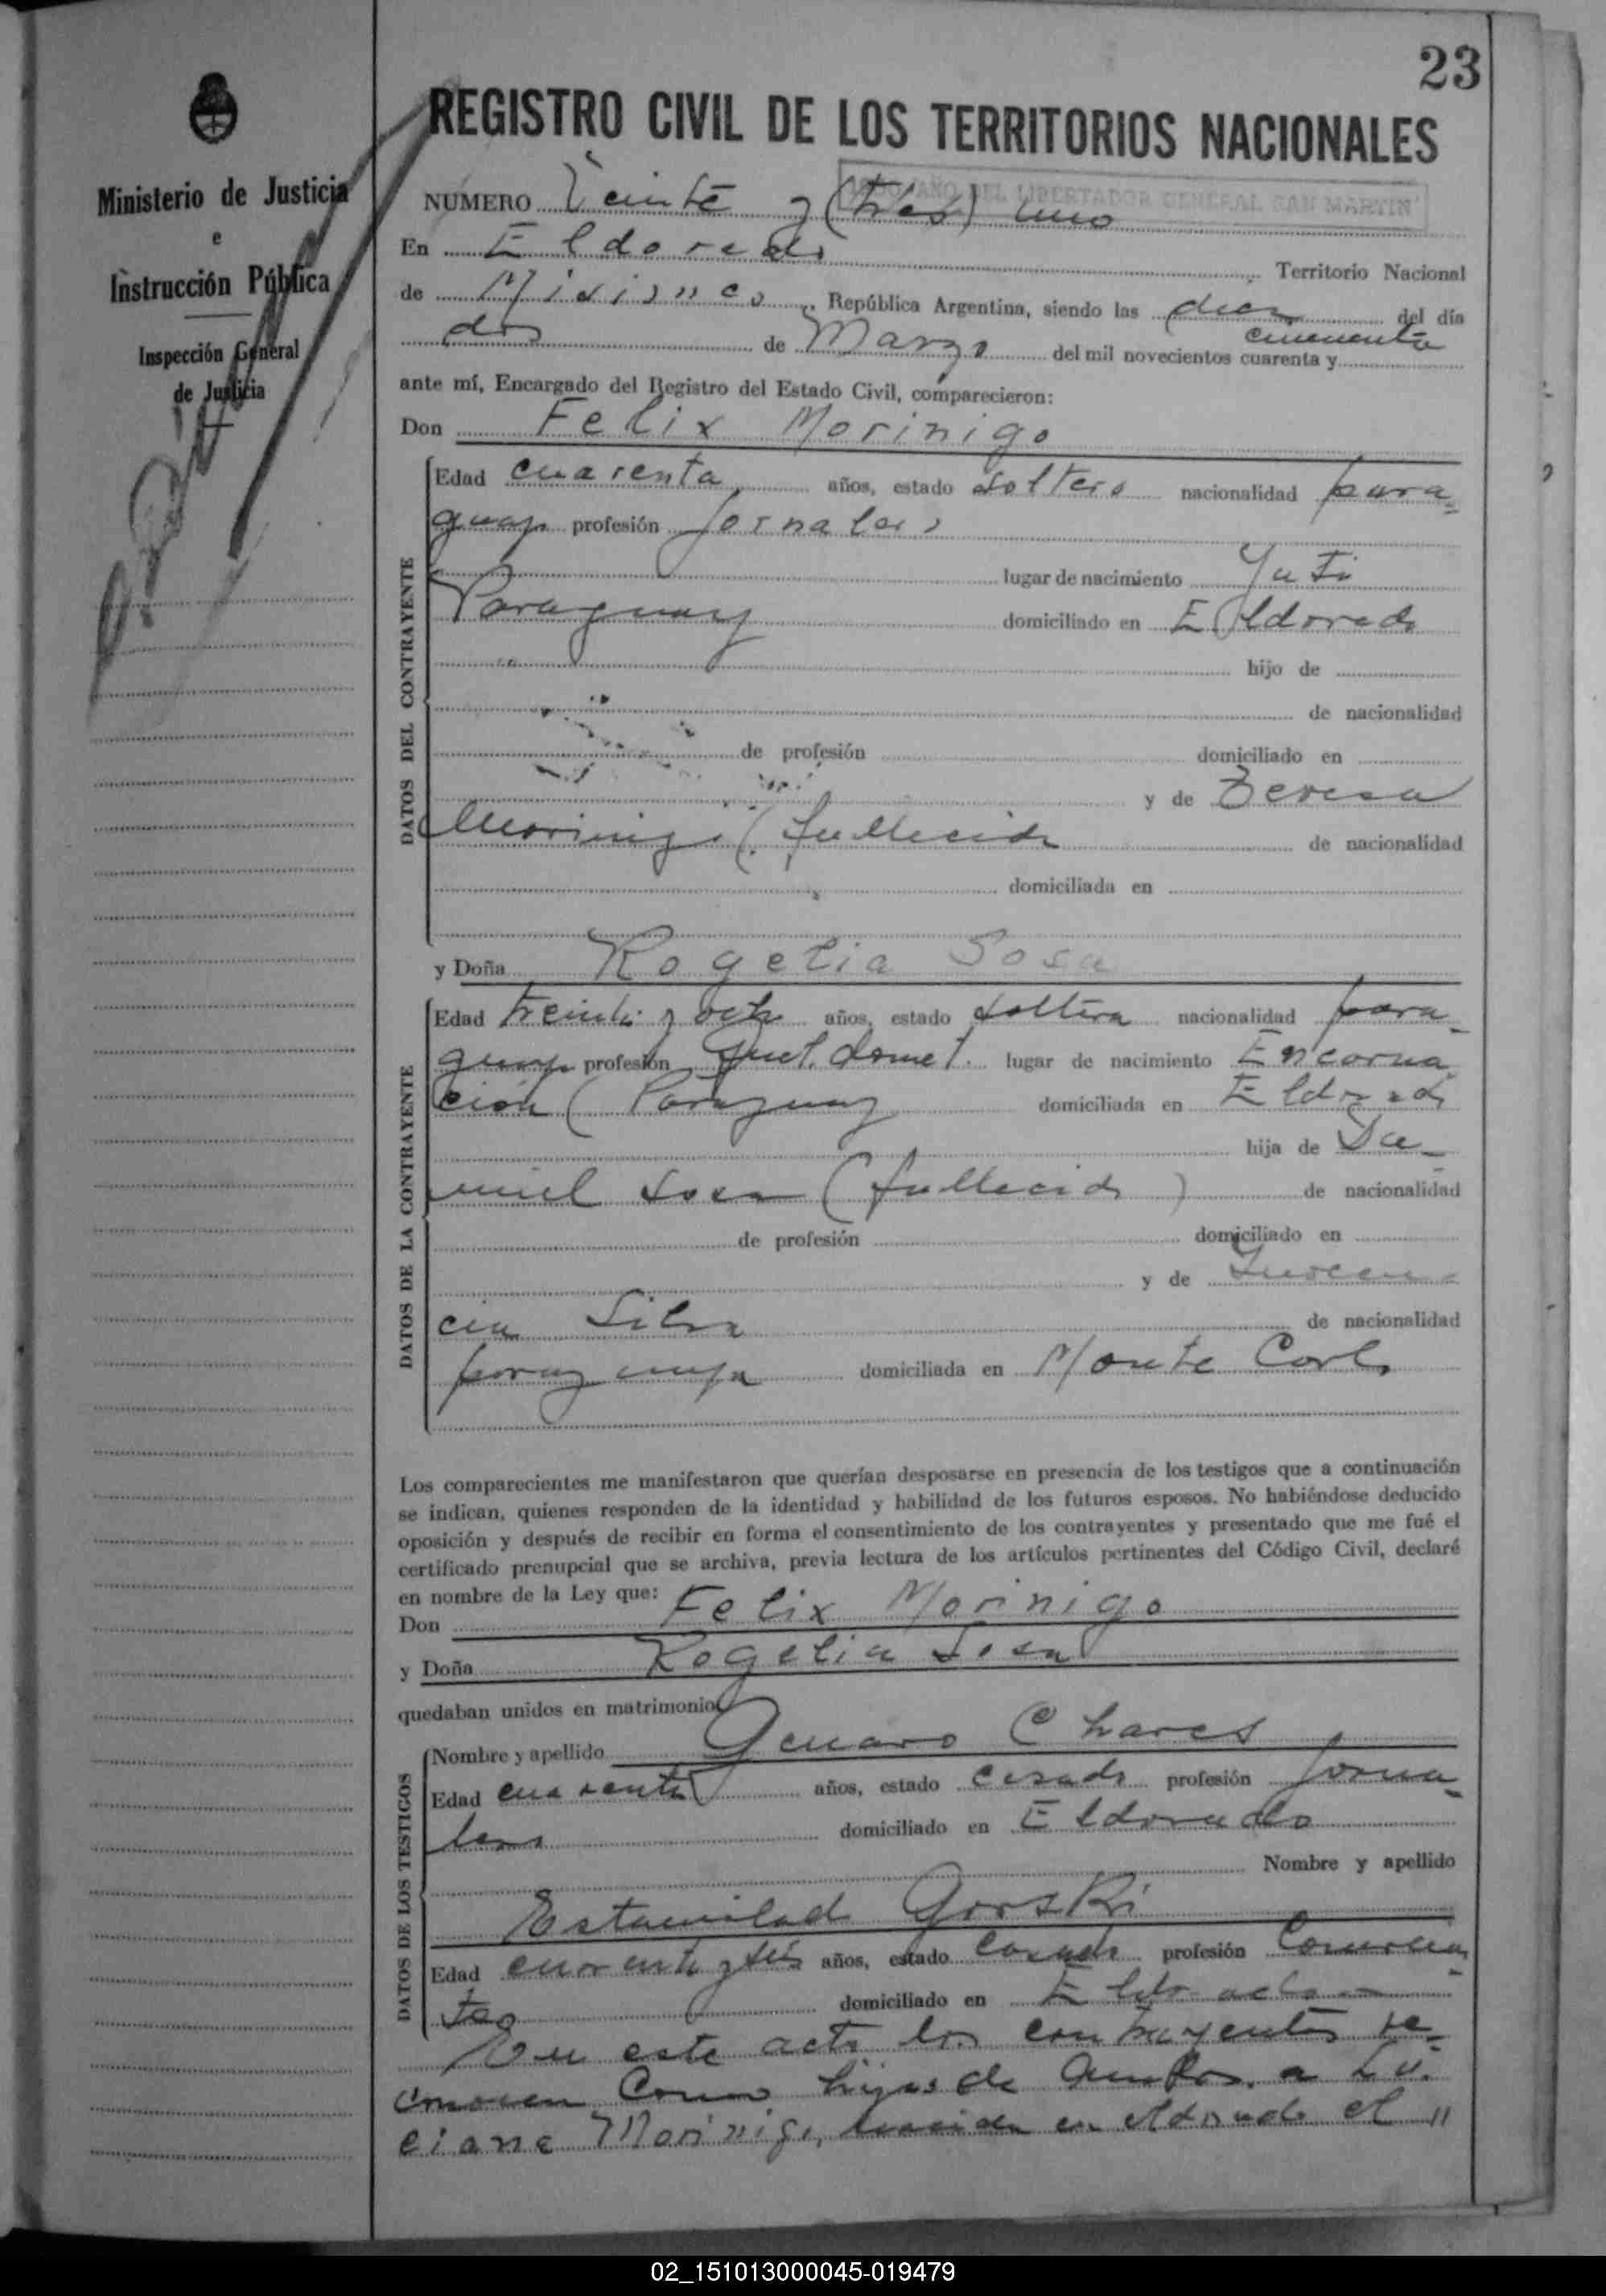 23
REGISTRO CIVIL DE LOS TERRITORIOS NACIONALES
Ministerio de Justicia
e
Instrucción Pública
Inspección General
de Justicia
1950 AÑO DEL LIBERTADOR GENERAL SAN MARTIN
NUMERO Veinte y (tres) uno
En Eldorado Territorio Nacional
de Misiones República Argentina, siendo las diez del día
dos de Marzo del mil novecientos cuarenta y cincuenta
ante mí, Encargado del Registro del Estado Civil, comparecieron:
Don Felix Morinigo
DATOS DEL CONTRAYENTE
Edad cuarenta años, estado soltero nacionalidad para-
guayo profesión Jornalero
lugar de nacimiento Yuti
Paraguay domiciliado en Eldorado
hijo de
de nacionalidad
de profesión domiciliado en
y de Teresa
Morinigo (fallecida de nacionalidad
domiciliada en
y Doña Rogelia Sosa
DATOS DE LA CONTRAYENTE
Edad treinta y ocho años, estado soltera nacionalidad para-
guaya profesión Quet. domest. lugar de nacimiento Encarna
ción (Paraguay domiciliada en Eldorado
hija de Da-
niel Sosa (fallecido) de nacionalidad
de profesión domiciliado en
y de Inocen-
cia Silva de nacionalidad
paraguaya domiciliada en Monte Carlo
Los comparecientes me manifestaron que querían desposarse en presencia de los testigos que a continuación
se indican, quienes responden de la identidad y habilidad de los futuros esposos. No habiéndose deducido
oposición y después de recibir en forma el consentimiento de los contrayentes y presentado que me fué el
certificado prenupcial que se archiva, previa lectura de los artículos pertinentes del Código Civil, declaré
en nombre de la Ley que:
Don Felix Morinigo
y Doña Rogelia Sosa
quedaban unidos en matrimonio
DATOS DE LOS TESTIGOS
Nombre y apellido Genaro Chares
Edad cuarenta años, estado casado profesión Jorna-
lero domiciliado en Eldorado
Nombre y apellido
Estanilad Gorski
Edad cuarenta y seis años, estado casado profesión Comercian-
te domiciliado en Eldorado
En este acto los contrayentes re-
conocen Como hijas de Ambos. a Lu.
ciana Morinigo, nacida en eldorado el 11
02_151013000045-019479